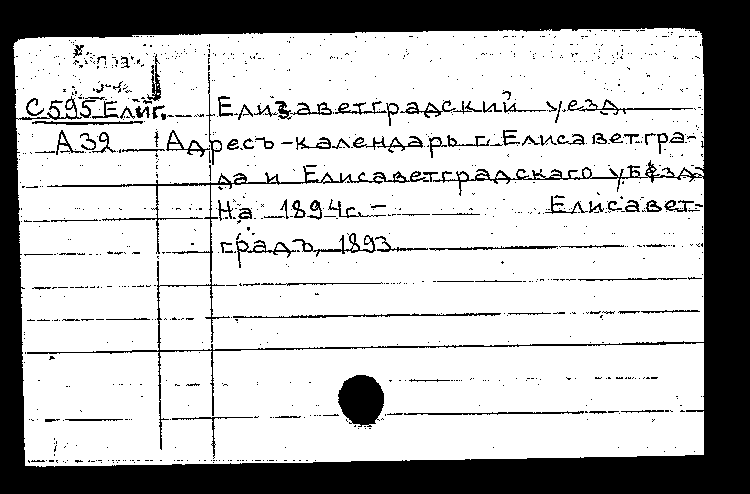 С595 Елиг. Елизаветградский уезд.
А32 Адресъ-календарь г. Елисаветгра-
да и Елисаветградскаго уѣзда
На 1894г. – Елисавет-
градъ, 1893